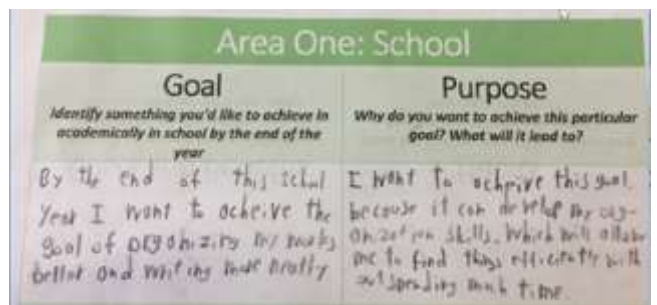 Area One: School
Goal
Identify something you'd like to achieve in
academically in school by the end of the
year
By the end of this school
Year I want to acheive the
goal of organizing my
better and writing more neatly
Purpose
Why do you want to achieve this particular
goal? What will it lead to?
I want to acheive this goal.
because it can develop my org-
anization skills. Which will allow
me to find things efficiently with
out spending much time.